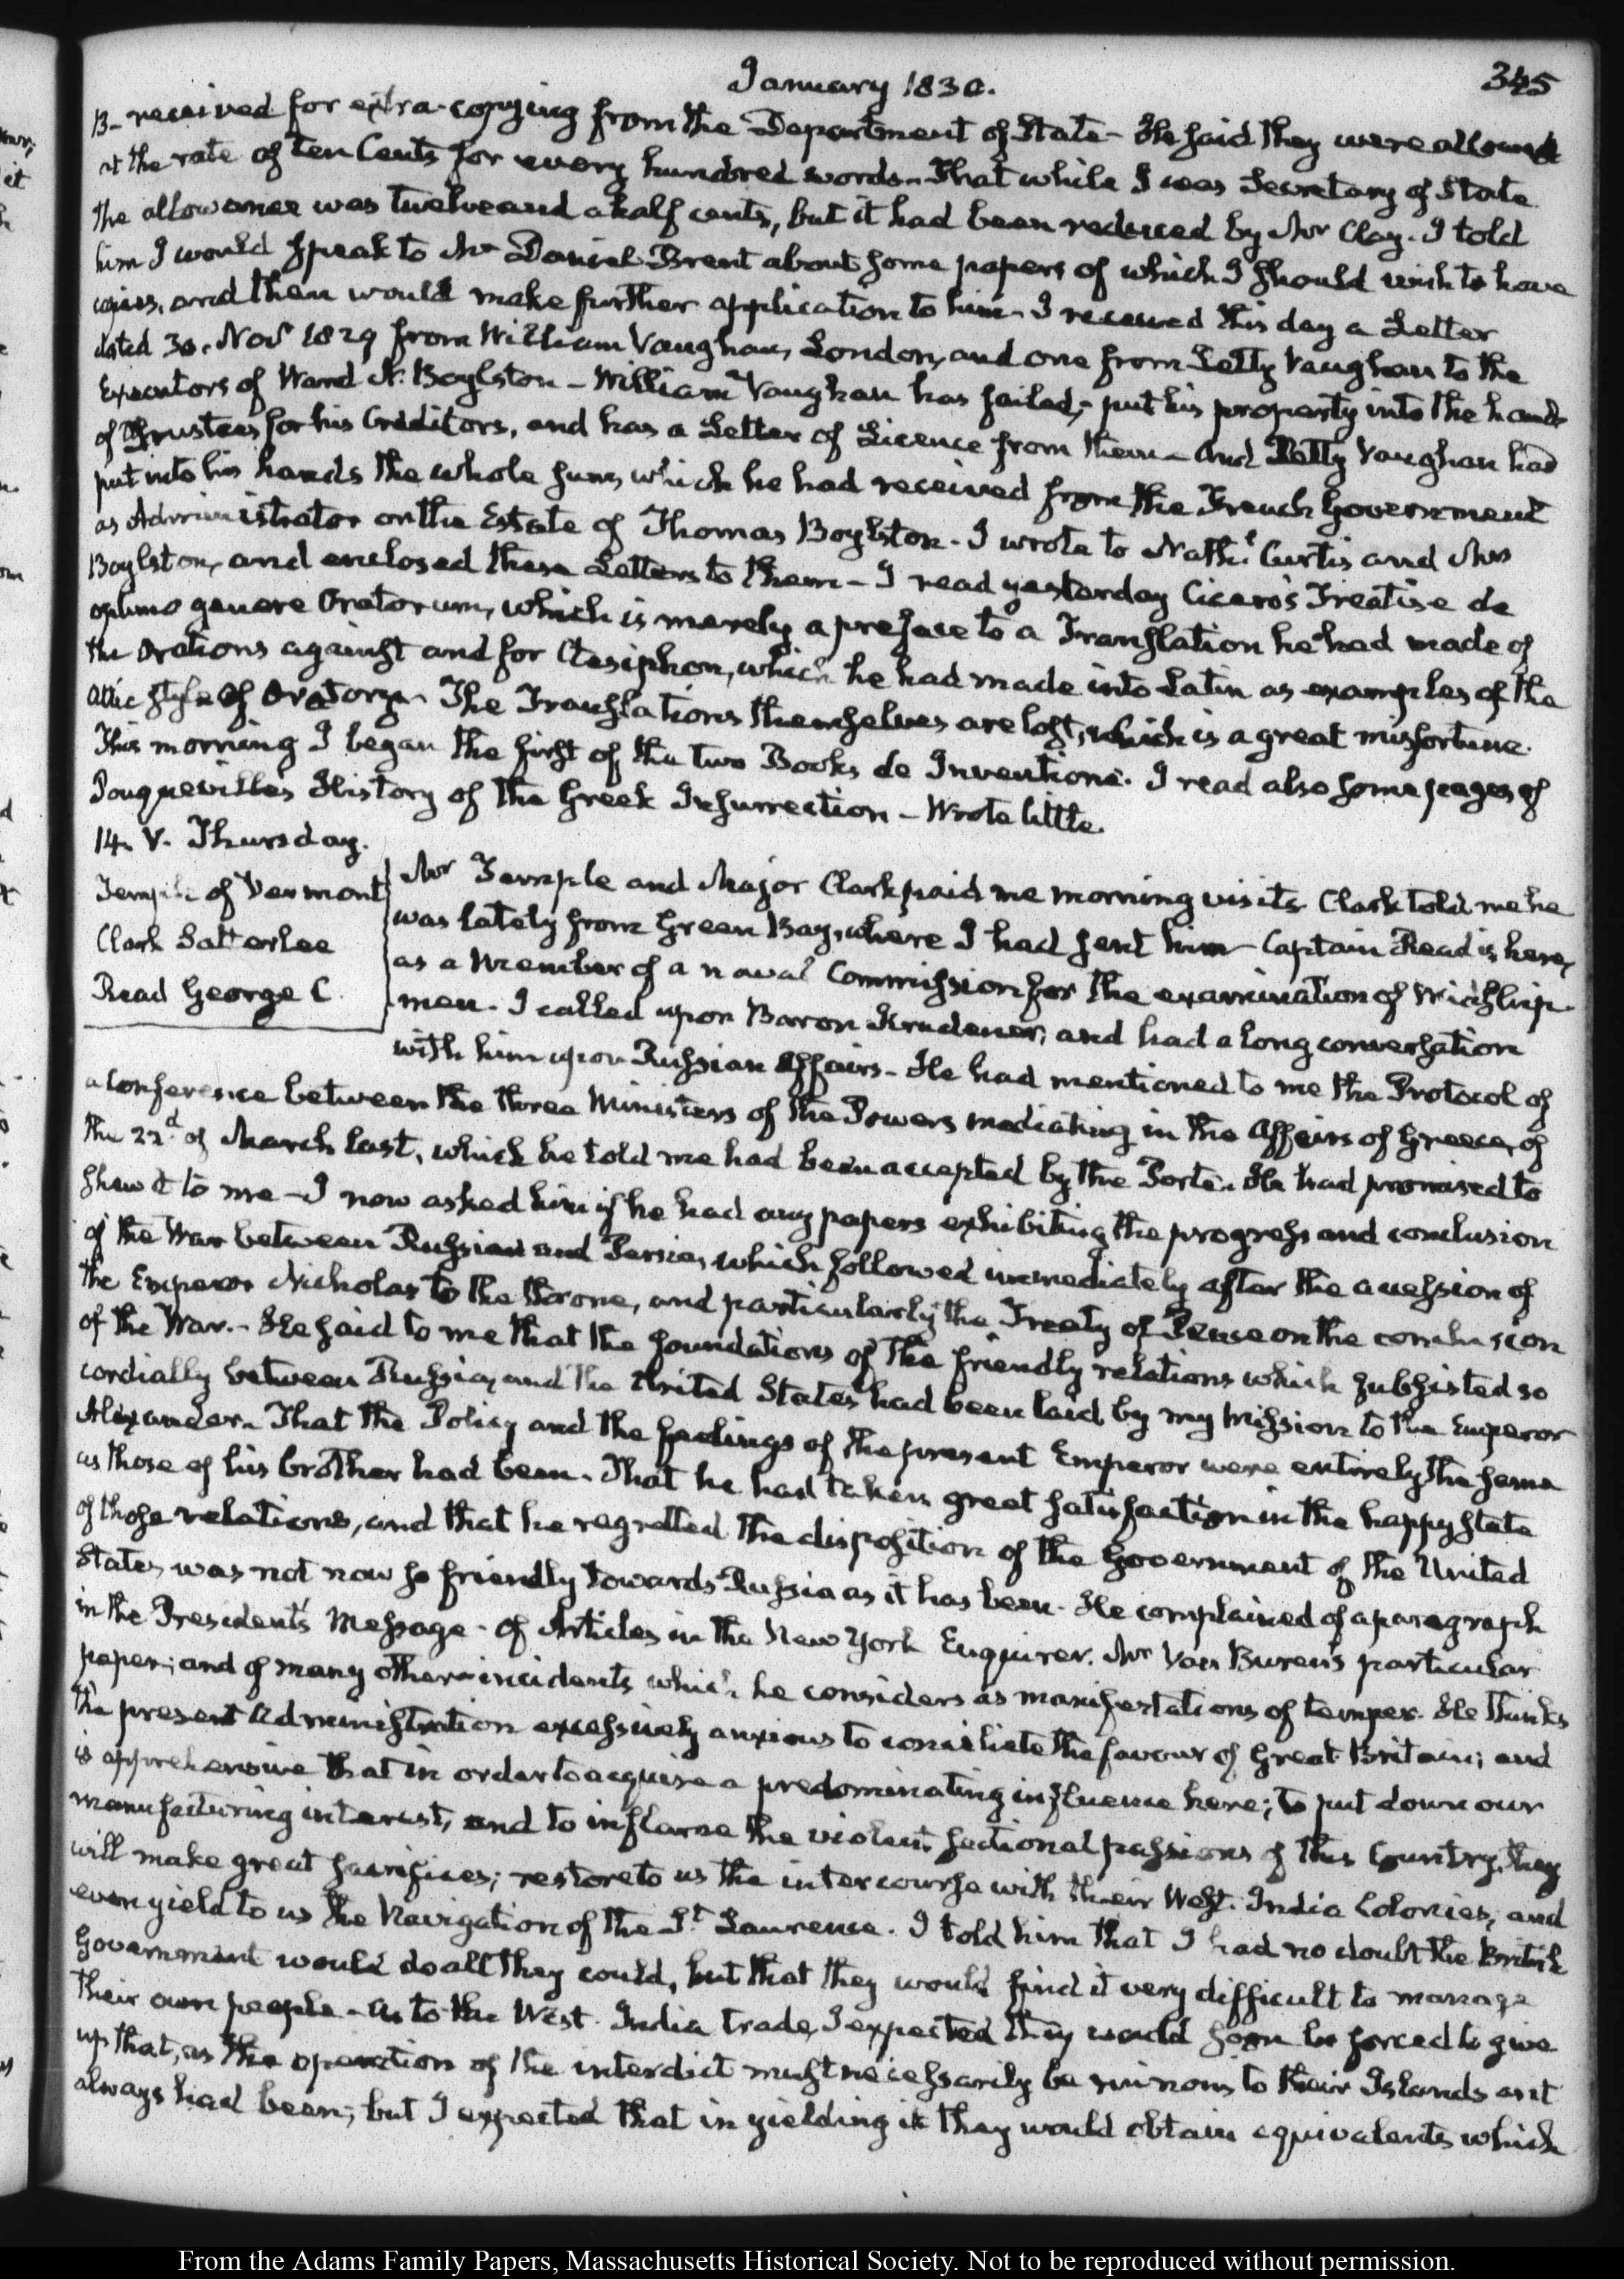 January 1830.
345
B- received for extra-copying from the Department of State- He said they were allowed
at the rate of ten Cents for every hundred words- That while I was Secretary of State
the allowance was twelve and a half cents, but it had been reduced by Mr Clay. I told
him I would speak to Mr Daniel Brent about some papers of which I should wish to have
copies, and then would make further application to him- I received this day a Letter
dated 30. Novr 1829 from William Vaughan, London, and one from Petty Vaughan to the
Executors of Ward N. Boylston- William Vaughan has failed;- put his property into the hands
of Trustees for his Creditors, and has a Letter of Licence from them- And Petty Vaughan had
put into his hands the whole sum, which he had received from the French Government
as Administrator on the Estate of Thomas Boylston. I wrote to Nathl. Curtis and Mrs
Boylston, and enclosed these Letters to them- I read yesterday Cicero's Treatise de
optimo genere Oratorum, which is merely a preface to a Translation he had made of
the Orations against and for Ctesiphon, which he had made into Latin as examples of the
Attic style of Oratory- The Translations themselves are lost, which is a great misfortune.
This morning I began the first of the two Books de Inventione. I read also some pages of
Pouqueville's History of the Greek Insurrection- Wrote little.
14. V. Thursday.
Temple of Vermont
Clark Satterlee
Read George C.
Mr Temple and Major Clark paid me morning visits Clark told me he
was lately from Green Bay, where I had sent him- Captain Read is here,
as a Member of a naval Commission for the examination of Midship-
men. I called upon Baron Krudener, and had a long conversation
with him upon Russian Affairs- He had mentioned to me the Protocol of
a Conference between the three Ministers of the Powers mediating in the Affairs of Greece, of
the 22d of March last, which he told me had been accepted by the Porte. He had promised to
shew it to me- I now asked him if he had any papers exhibiting the progress and conclusion
of the War between Russian and Persia, which followed immediately after the accession of
the Emperor Nicholas to the throne, and particularly the Treaty of Peace on the conclusion
of the War.- He said to me that the foundations of the friendly relations which subsisted so
cordially between Russia, and the United States had been laid by my Mission to the Emperor
Alexander. That the Policy and the feelings of the present Emperor were entirely the same
as those of his brother had been. That he had taken great satisfaction in the happy state
of those relations, and that he regretted the disposition of the Government of the United
States was not now so friendly towards Russia as it has been. He complained of a paragraph
in the President's Message- of Articles in the New York Enquirer. Mr Van Buren's particular
paper; and of many other incidents which he considers as manifestations of temper. He thinks
the present Administration excessively anxious to conciliate the favour of Great-Britain; and
is apprehensive that in order to acquire a predominating influence here; to put down our
manufacturing interest, and to inflame the violent sectional passions of this Country, they
will make great sacrifices; restore to us the intercourse with their West-India Colonies, and
even yield to us the Navigation of the St Laurence. I told him that I had no doubt the British
Government would do all they could, but that they would find it very difficult to manage
their own people- As to the West-India trade, I expected they would soon be forced to give
up that, as the operation of the interdict must necessarily be ruinous to their Islands as it
always had been; but I expected that in yielding it they would obtain equivalents which
From the Adams Family Papers, Massachusetts Historical Society. Not to be reproduced without permission.